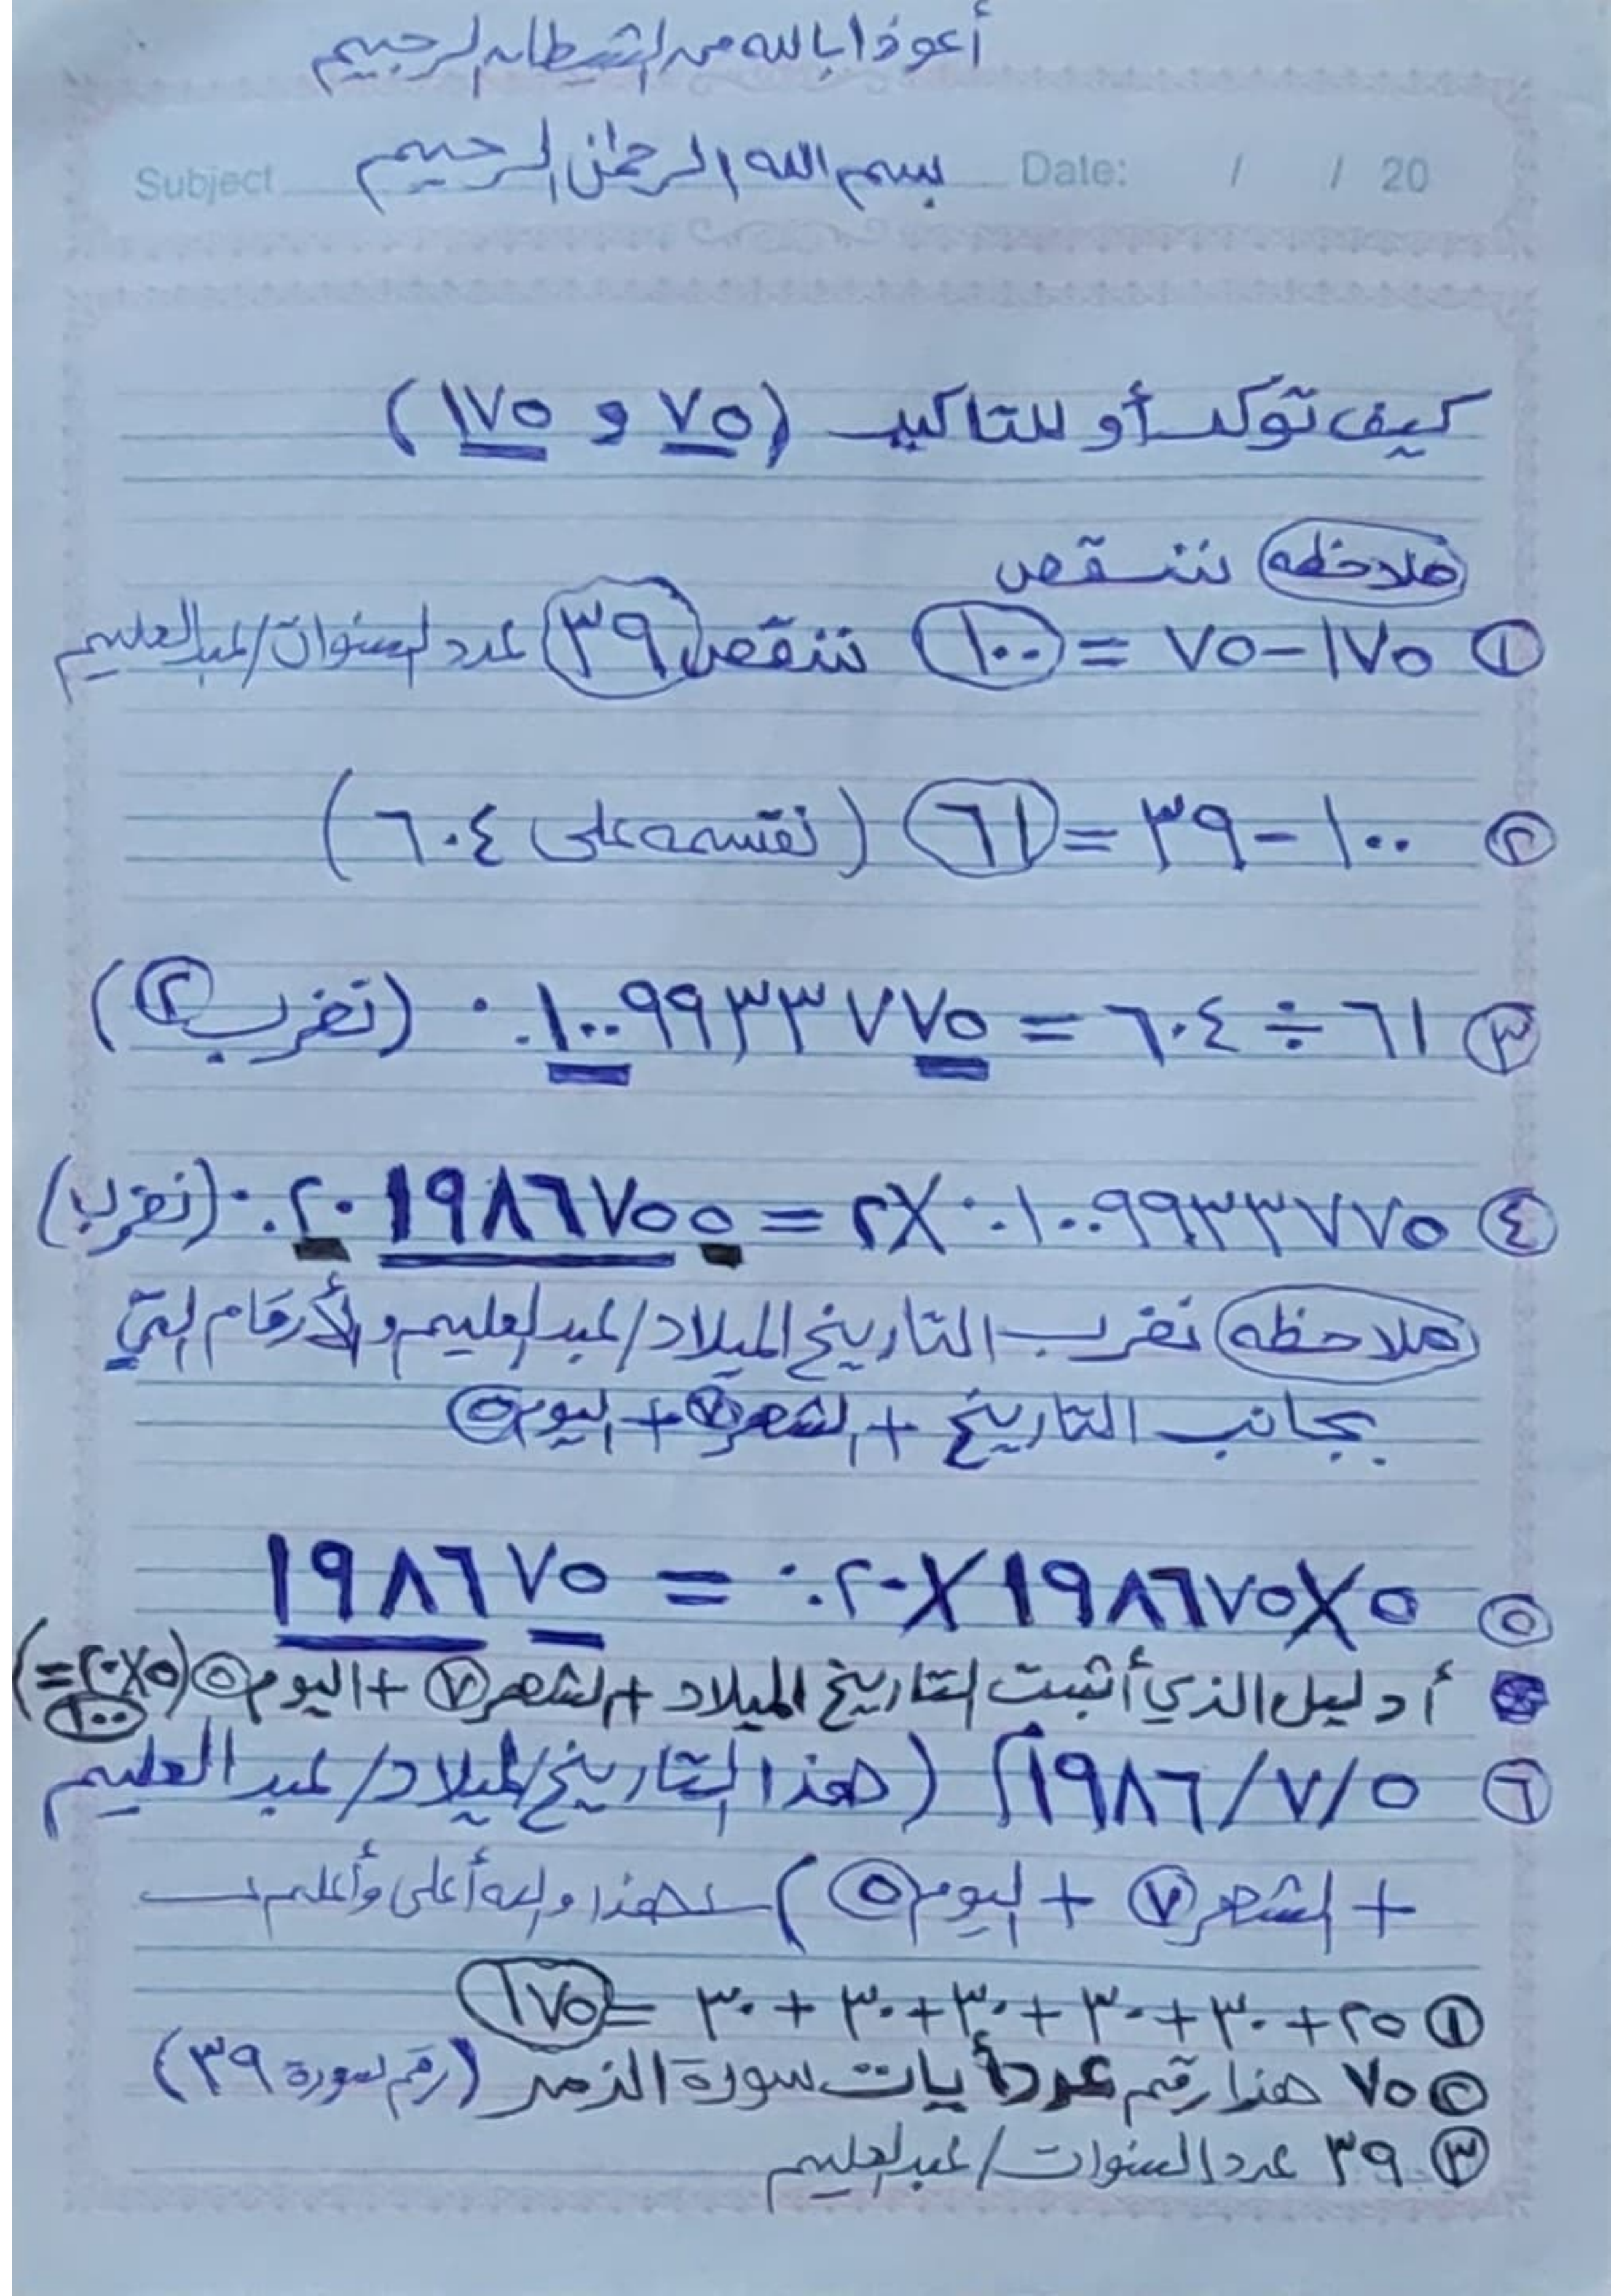 أعوذ بالله من الشيطان الرجيم
بسم الله الرحمن الرحيم
Subject Date: / / 20
كيف تؤكد أو للتاكيد (٧٥ و ١٧٥)
ملاحظه ننقص
① ١٧٥-٧٥ = ١٠٠ ننقص ٣٩ عدد السنوات/عبدالعليم
② ١٠٠-٣٩ = ٦١ (نقسمه على ٦٠٤)
③ ٦١ ÷ ٦٠٤ = ٠.١٠٠٩٩٣٣٧٧٥ (نضرب ②)
④ ٠.١٠٠٩٩٣٣٧٧٥ X ٢ = ٠.٢٠١٩٨٦٧٥٥ (نضرب)
ملاحظه نضرب التاريخ الميلاد/عبدالعليم والأرقام التي
بجانب التاريخ + الشهر ⑦ + اليوم ⑤
⑤ ٥X١٩٨٦٧٥X٠.٢٠ = ١٩٨٦٧٥
أدليل الذي أثبت التاريخ الميلاد + الشهر ⑦ + اليوم ⑤ (٥X٢٠=١٠٠)
⑥ ١٩٨٦/٧/٥م (هذا التاريخ الميلاد/عبد العليم
+ الشهر ⑦ + اليوم ⑤) هذا والله أعلى وأعلم
① ٢٥+٣٠+٣٠+٣٠+٣٠+٣٠ = ١٧٥
② ٧٥ هذا رقم عدد أيات سورة الزمر (رقم سورة ٣٩)
③ ٣٩ عدد السنوات/عبدالعليم